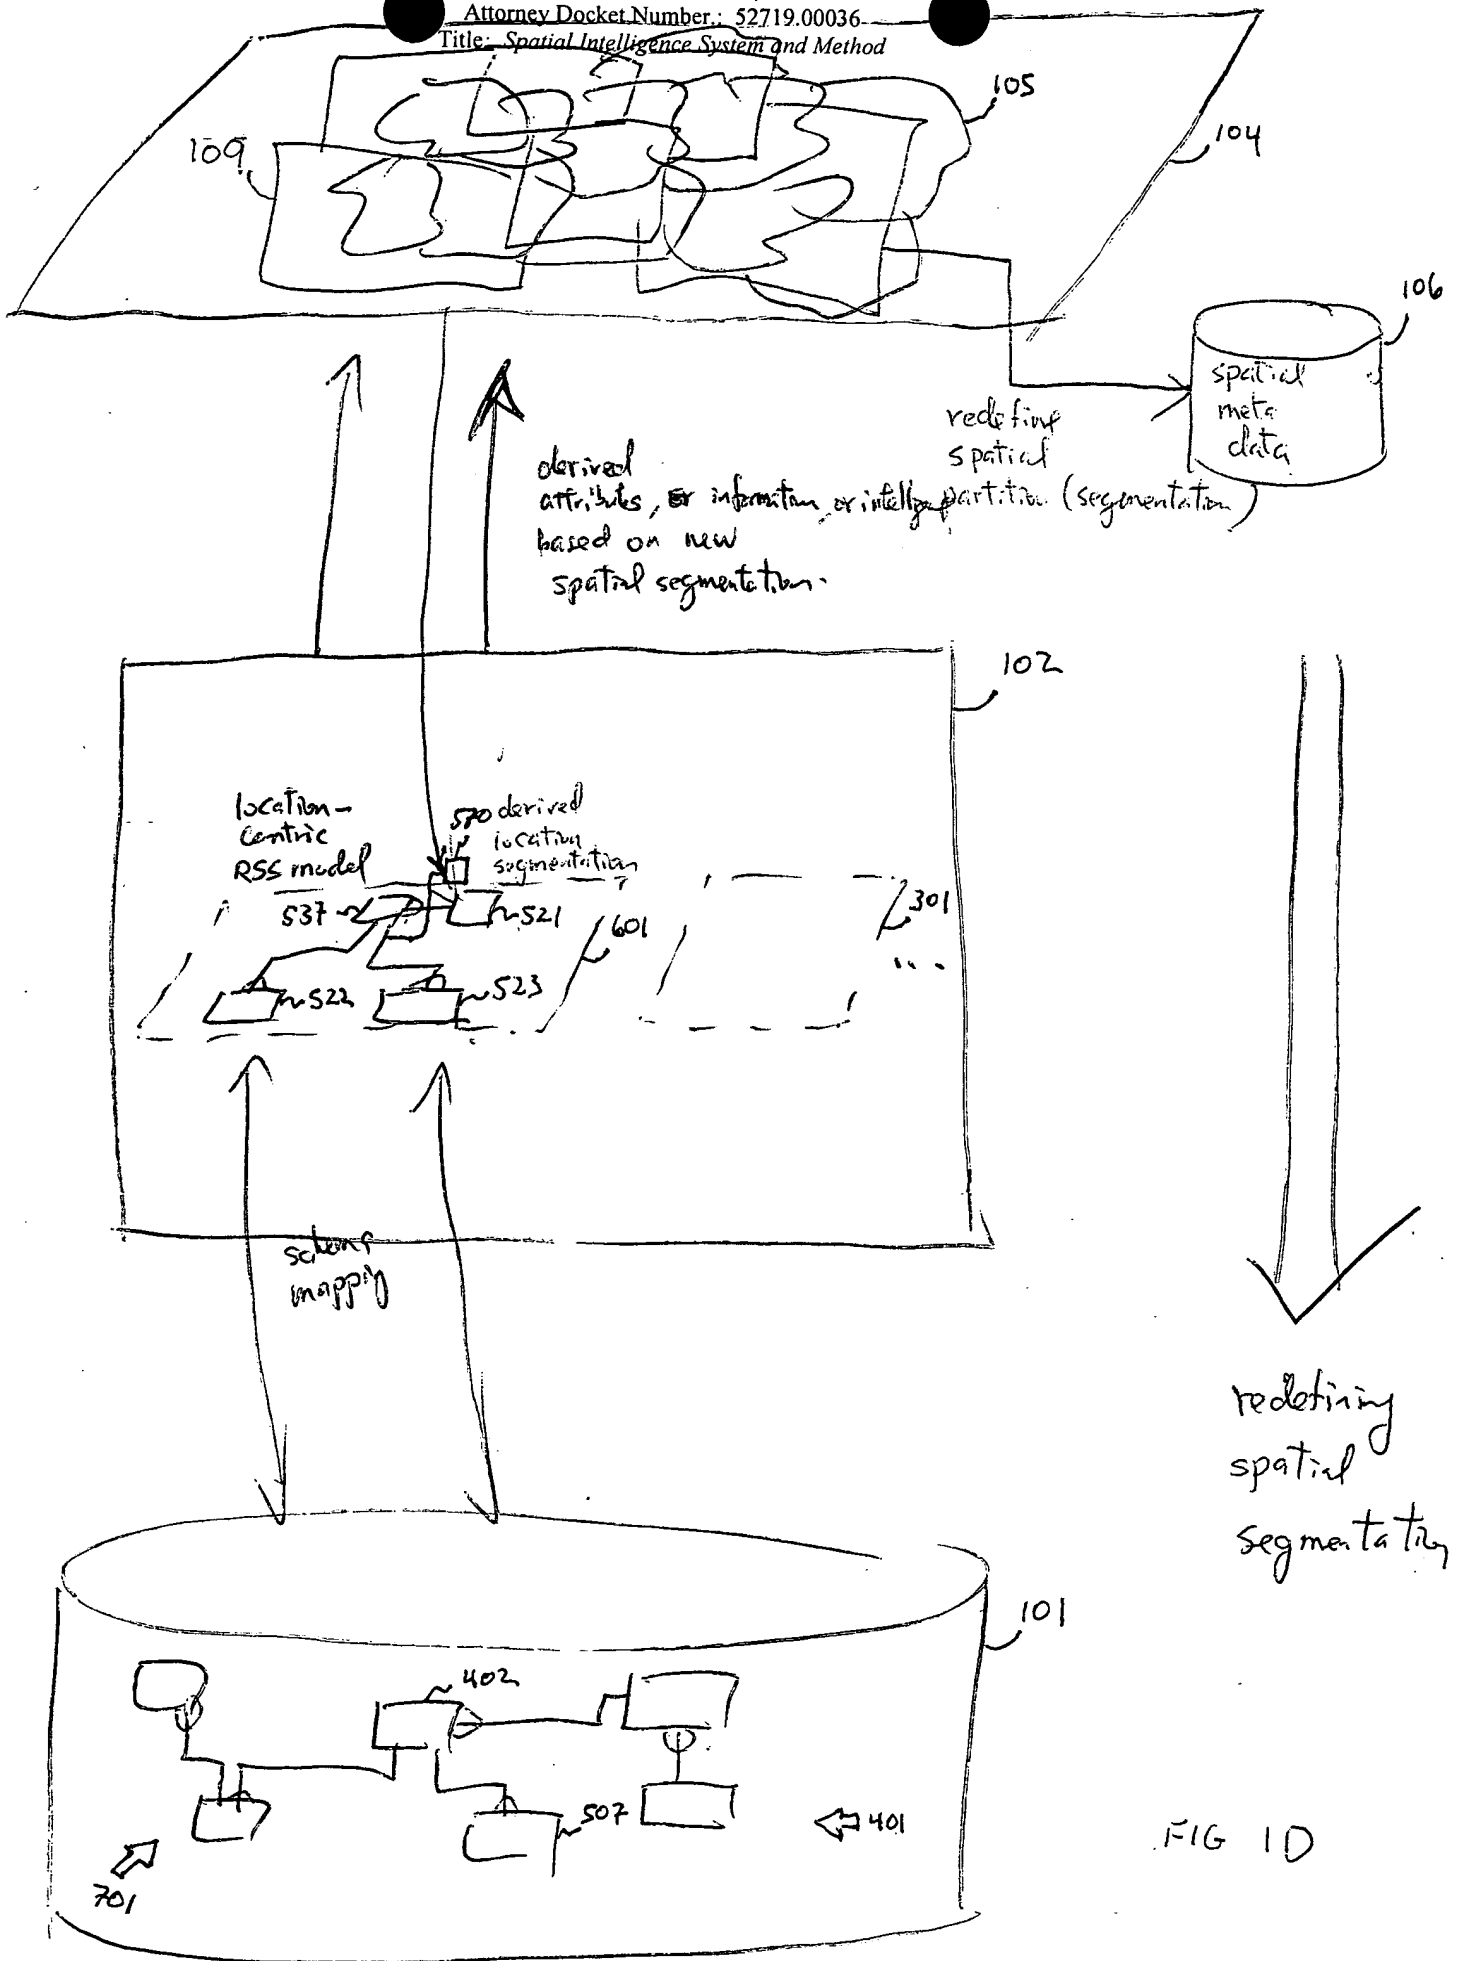 Attorney Docket Number.: 52719.00036
Title: Spatial Intelligence System and Method
105
104
109
106
spatial
meta
data
redefine
spatial
partition (segmentation)
derived
attributes, or information, or
based on new
spatial segmentation.
102
location-
centric
RSS model
570 derived
location
segmentation
537
521
601
301
....
522
523
schema
mapping
redefining
spatial
segmentation
101
402
507
401
701
FIG 1D